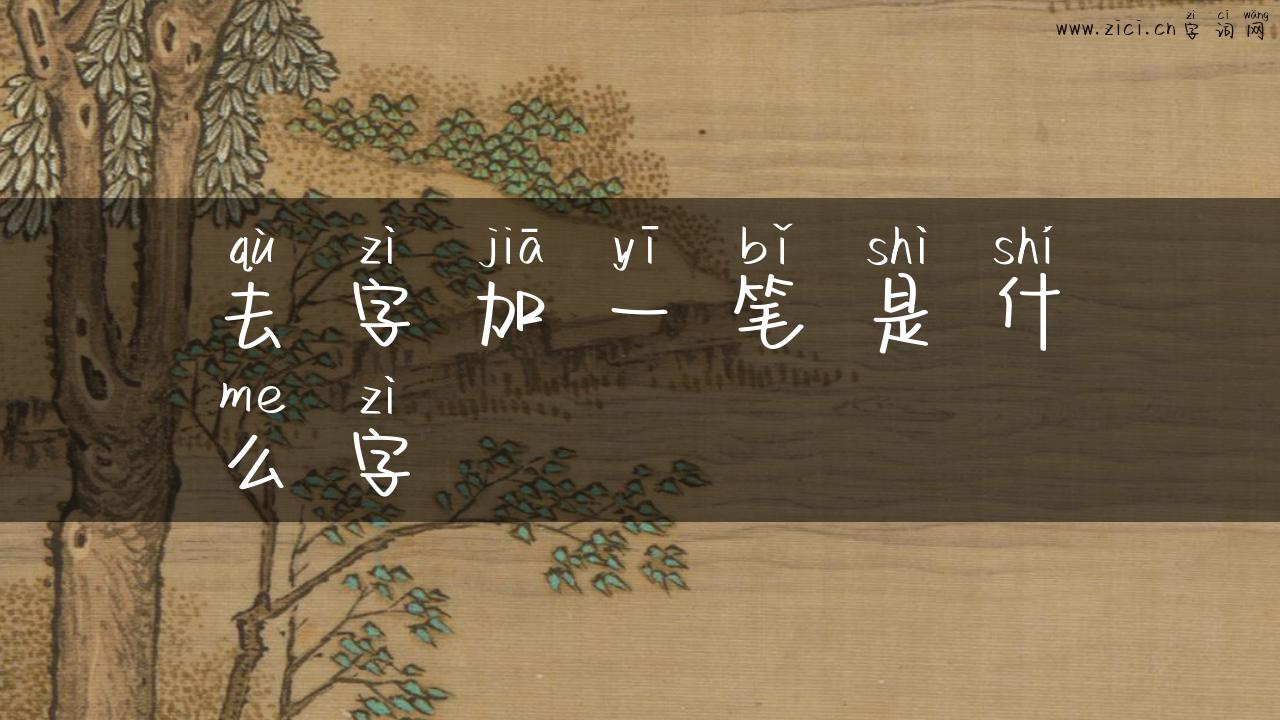 zì cí wǎng
www.zici.cn 字 词 网
qù zì jiā yī bǐ shì shí
去 字 加 一 笔 是 什
me zì
么 字